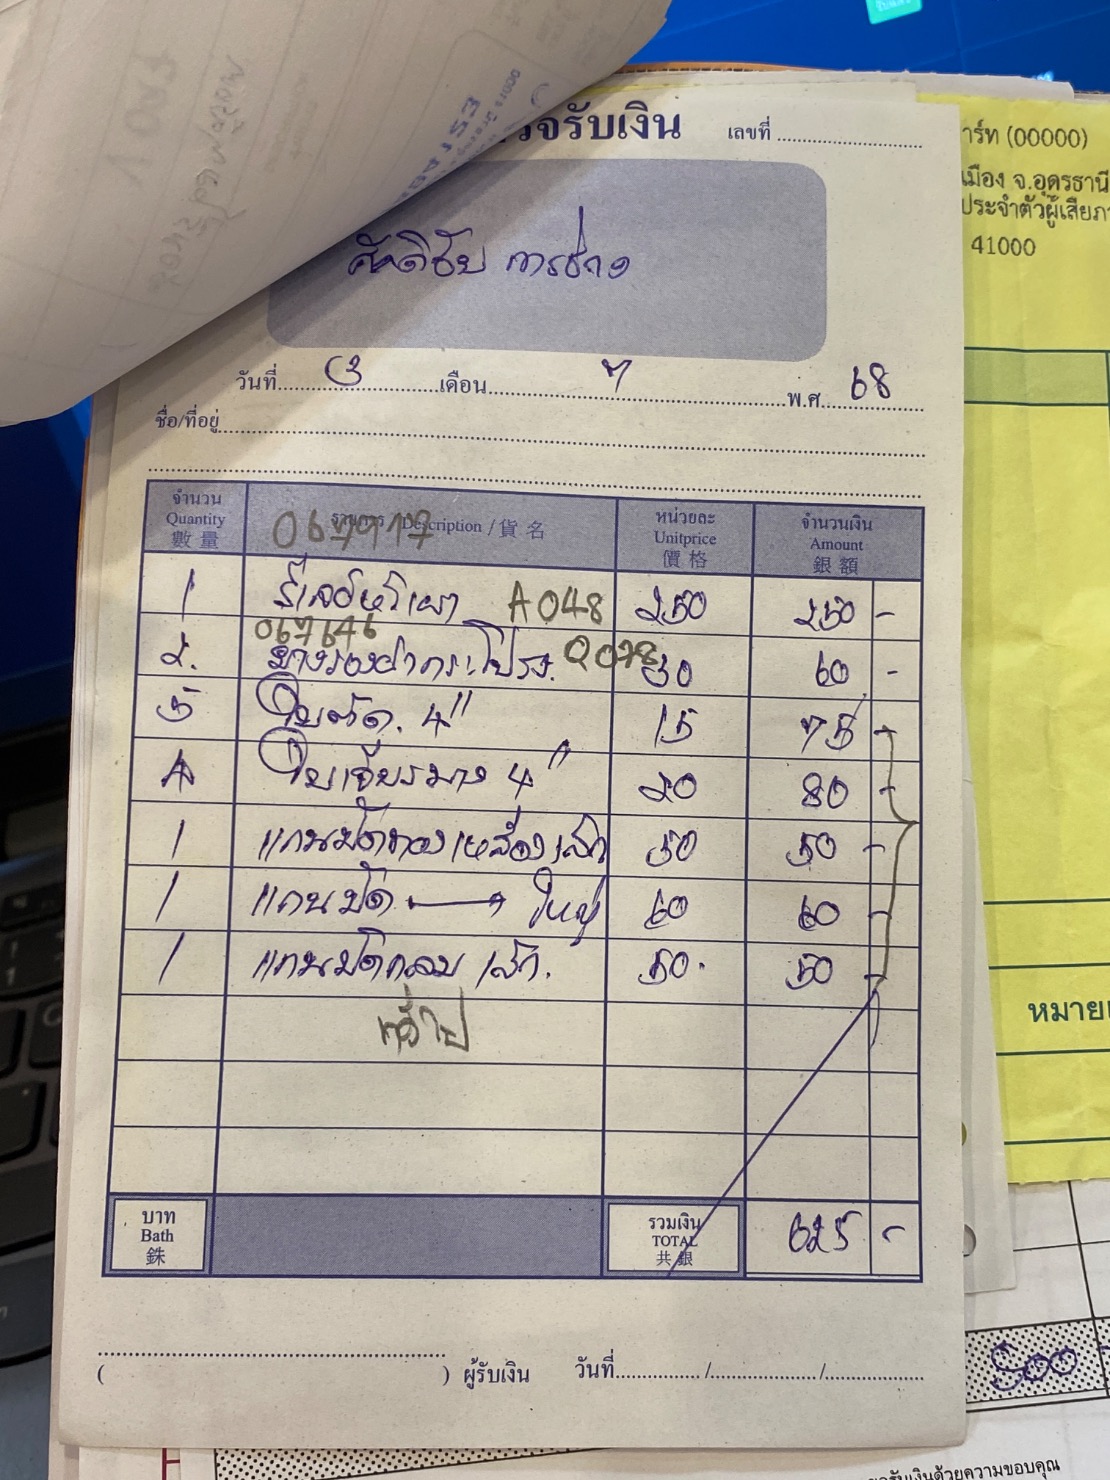 รับเงิน เลขที่
ศักดิ์ชัย การช่าง
วันที่ 3 เดือน 7 พ.ศ. 68
ชื่อ/ที่อยู่
จำนวน Quantity 數量
รายการ Description / 貨名
หน่วยละ Unitprice 價格
จำนวนเงิน Amount 銀額
067917
1 A048 250 250 -
067646
2. ยางรองฝากระโปรง. Q078 30 60 -
5 ใบตัด. 4" 15 75 -
4 ใบเจียรบาง 4" 20 80 -
1 แกนขัดทองเหลืองเล็ก 50 50 -
1 แกนขัด ใหญ่ 60 60 -
1 แกนขัดกลม เล็ก. 50. 50 -
ทั่วไป
บาท Bath 銖
รวมเงิน TOTAL 共銀 625 -
( ) ผู้รับเงิน วันที่ / /
าร์ท (00000)
เมือง จ.อุดรธานี
ประจำตัวผู้เสียภา
41000
หมายเ
500
รับเงินด้วยความขอบคุณ